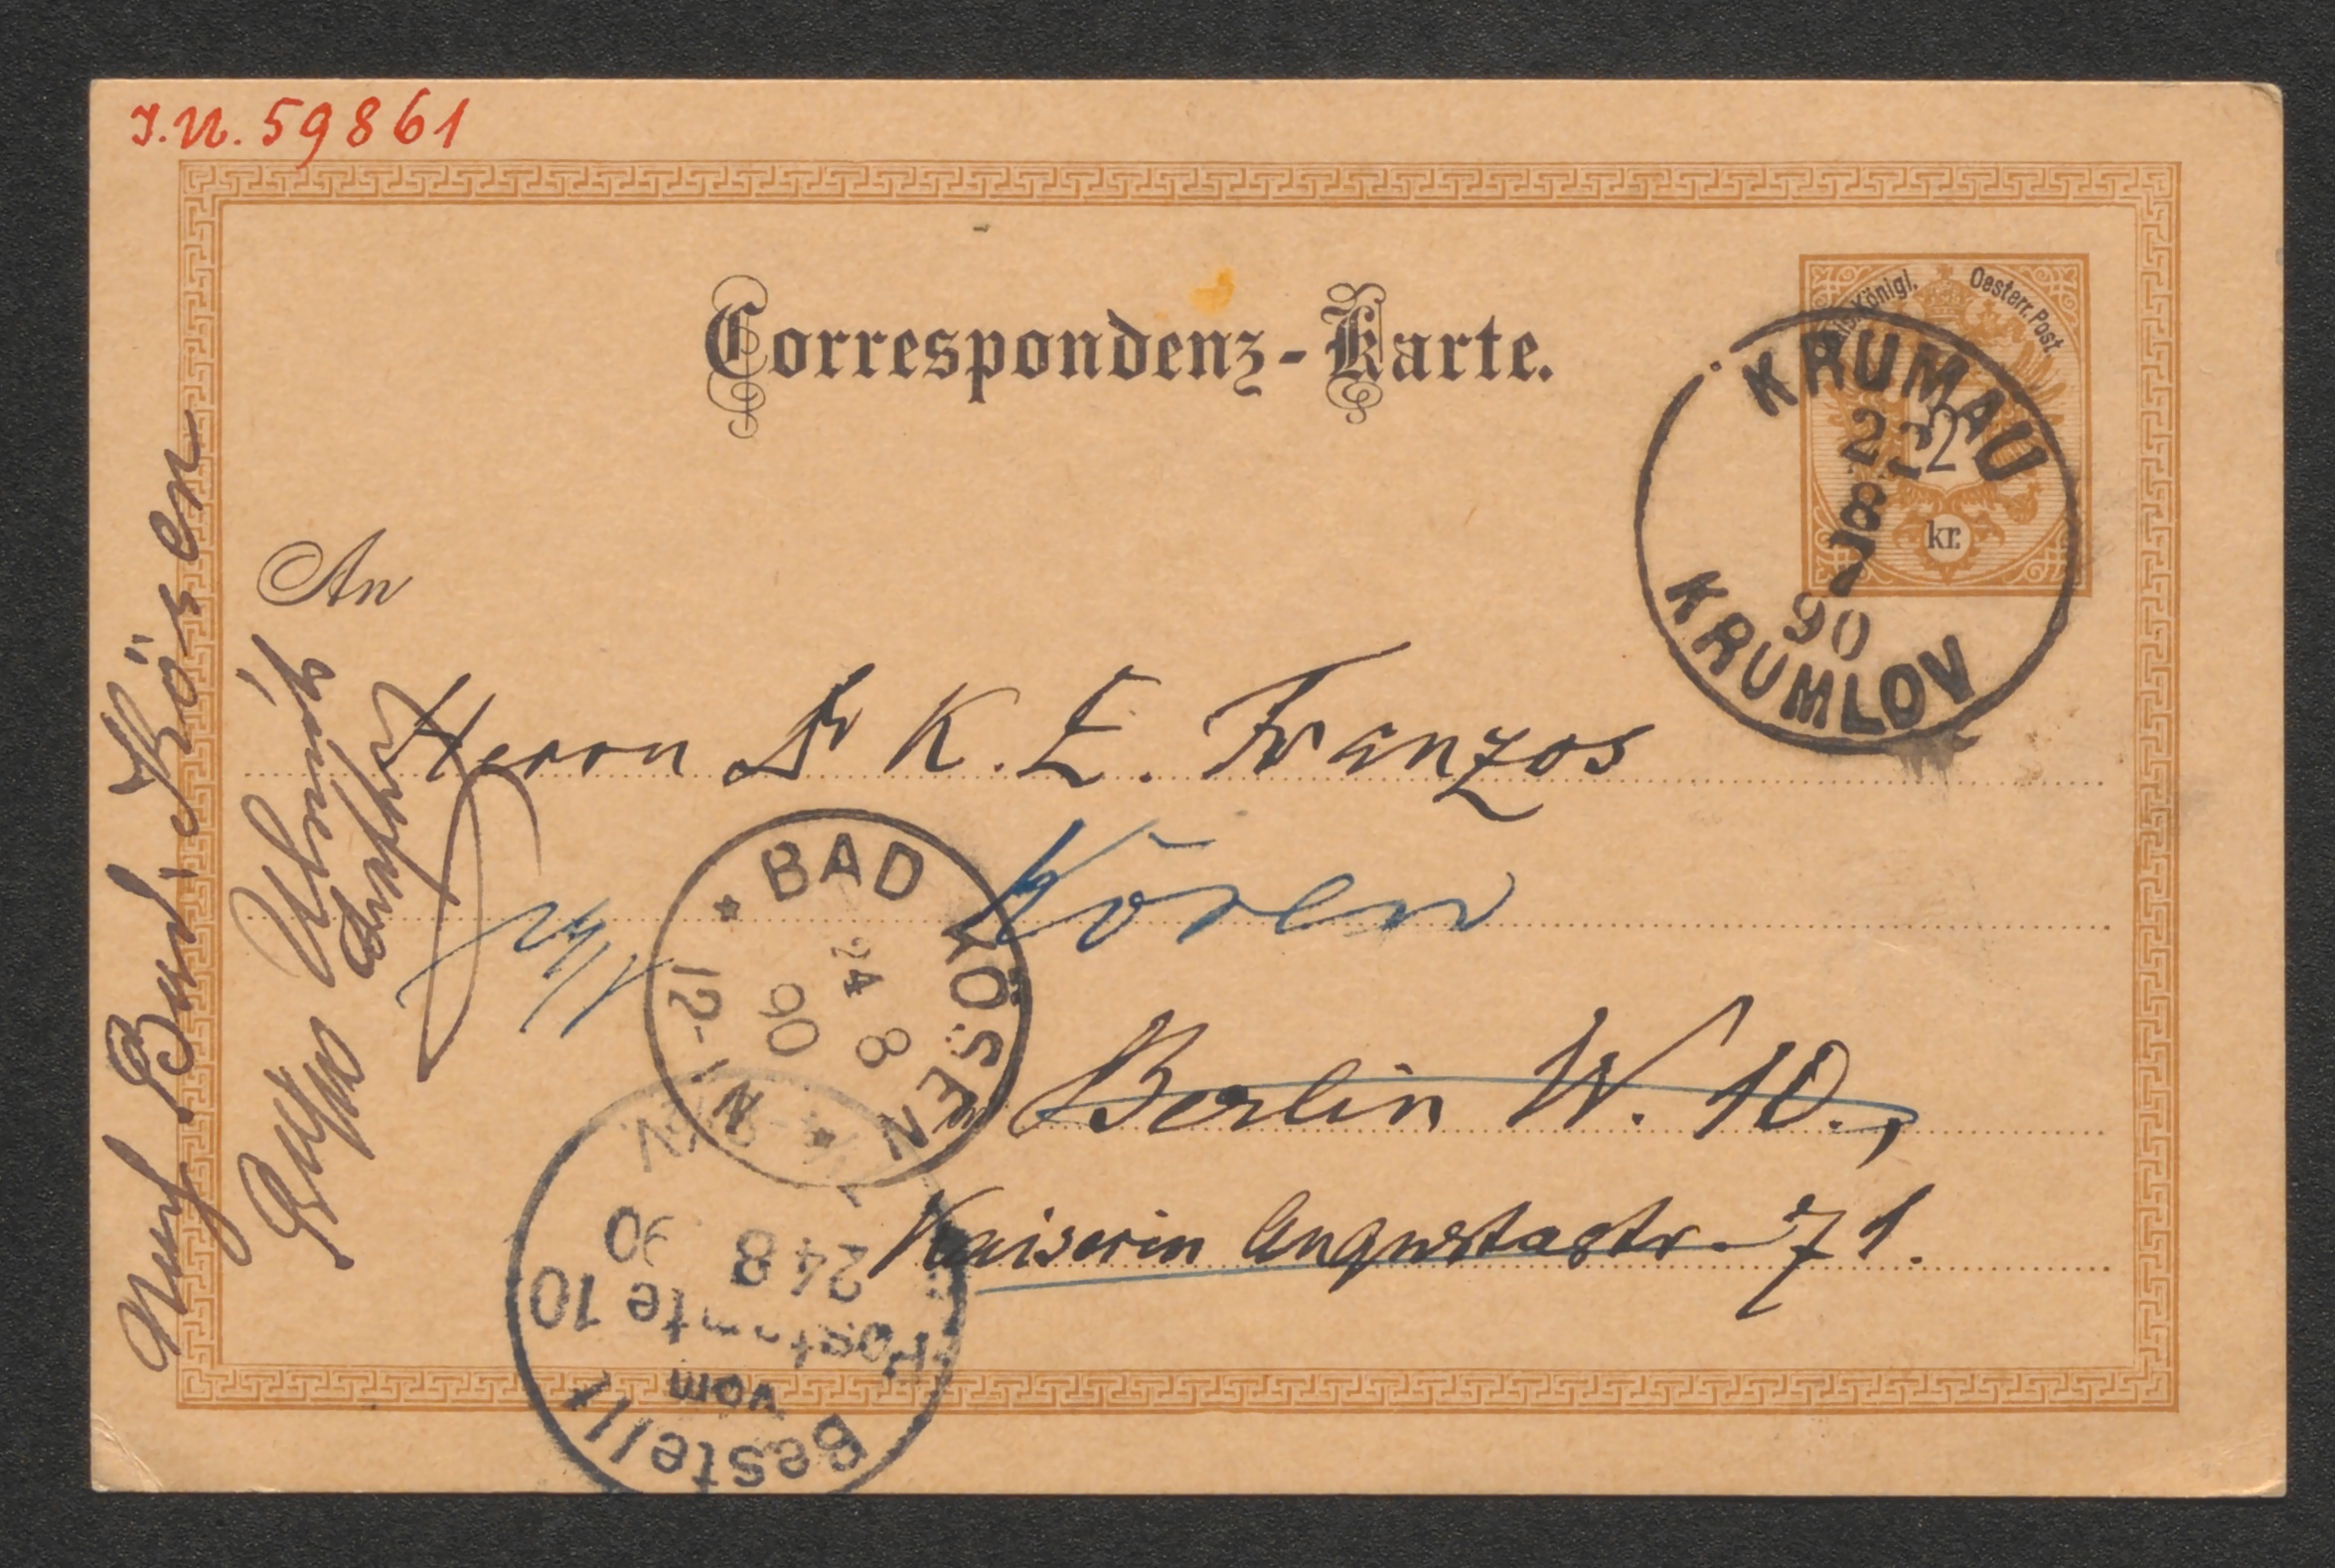 J.N. 59861
Correspondenz-Karte.
Königl. Oesterr. Post
2
kr.
KRUMAU
22
8
7
90
KRUMLOV
An
Herrn Dr K. E. Franzos
Kösen
Berlin W. 10.,
Kaiserin Augustastr. 71.
Nach Bad Kösen
BAD KÖSEN
24 8
90
12-1 N
Bestellt
vom
Postamte 10
24 8 90